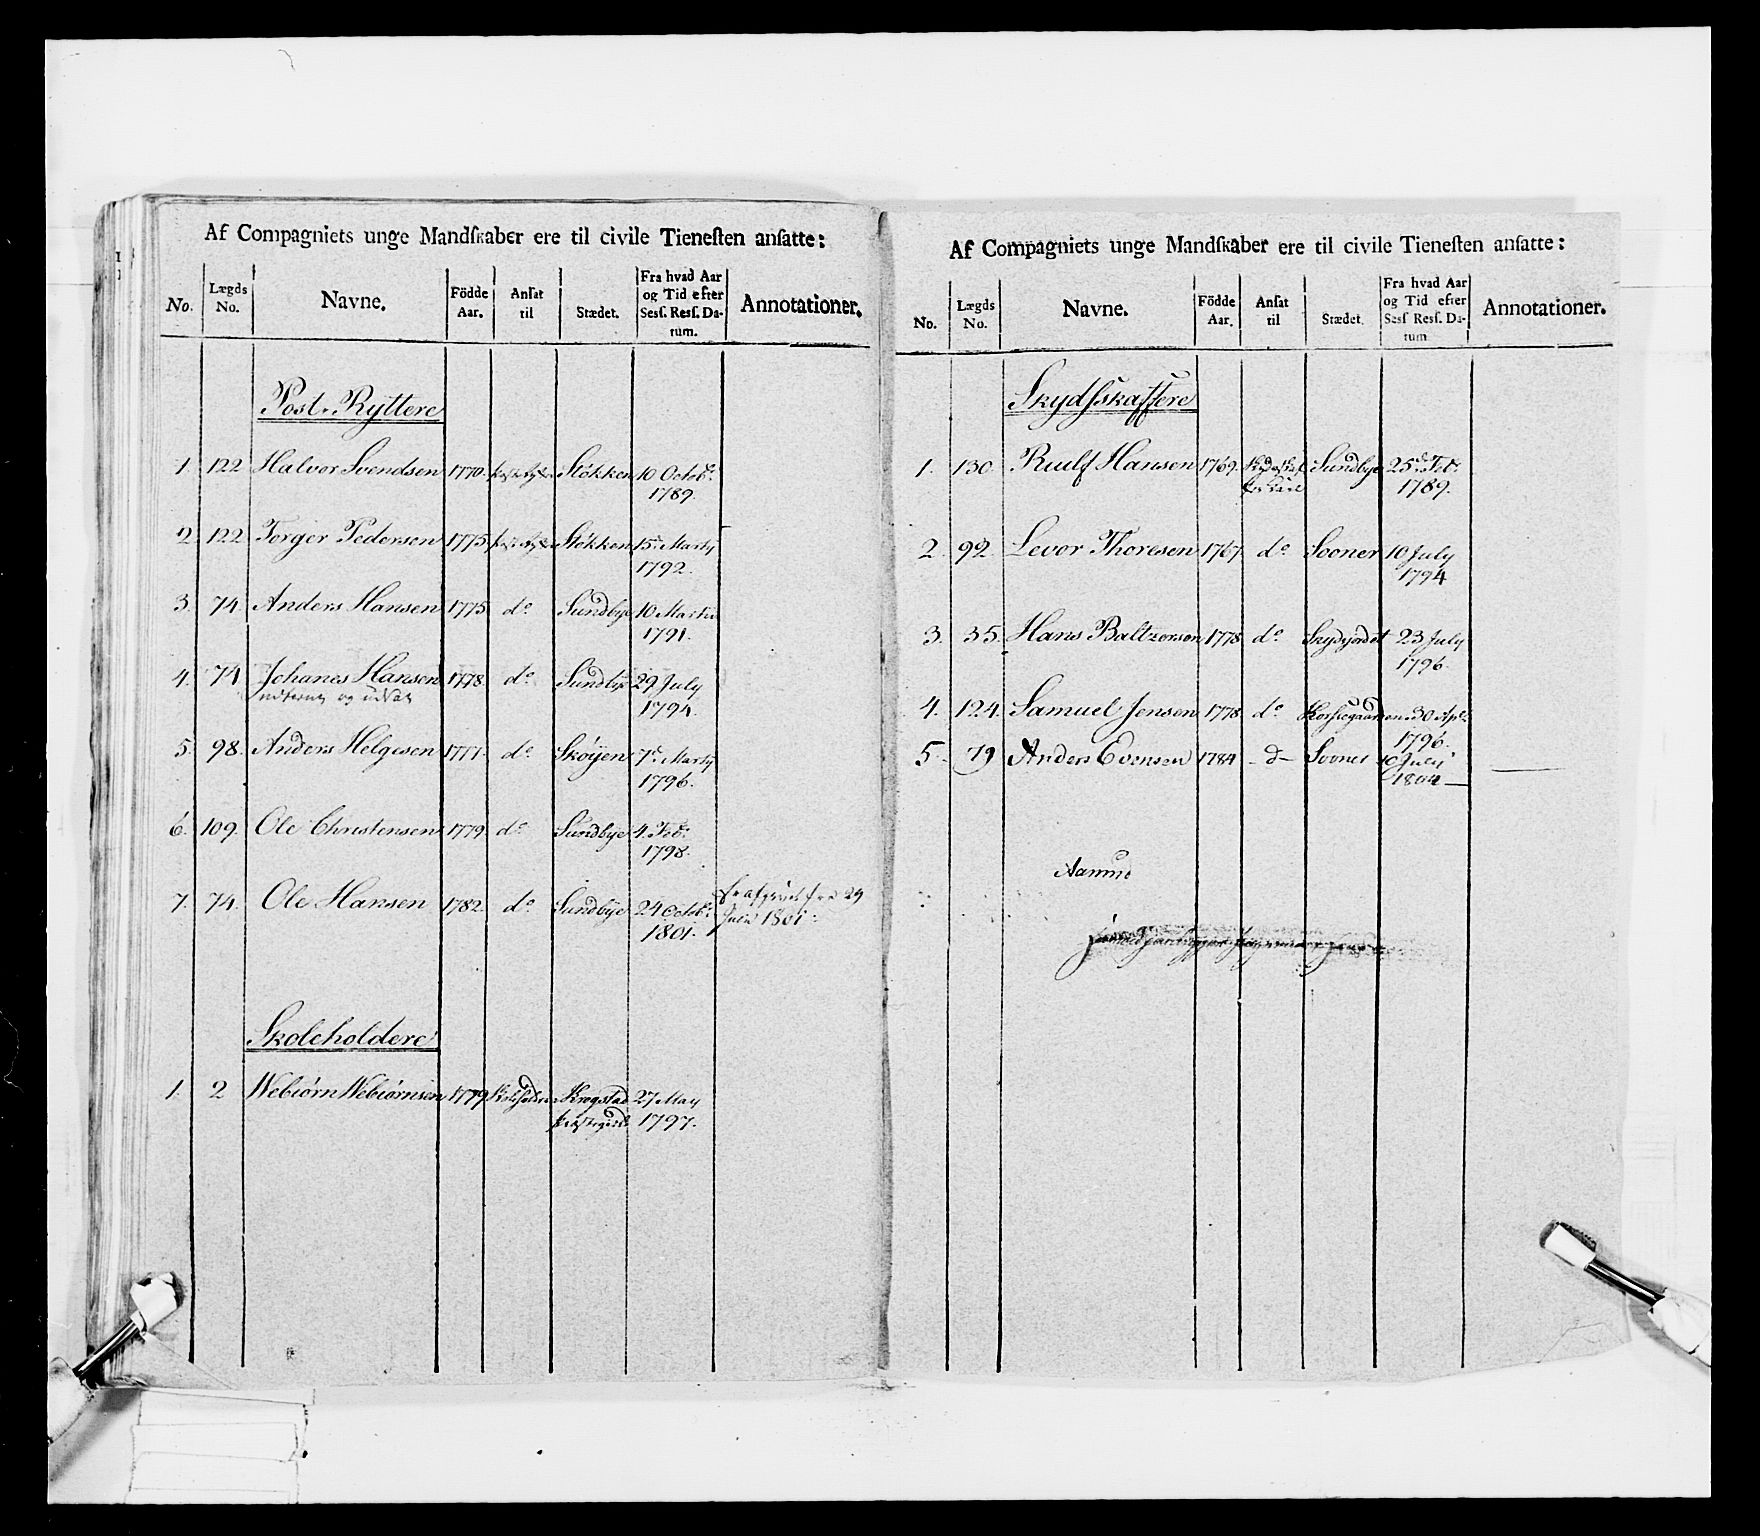 Af Compagniets unge Mandſkaber ere til civile Tieneſten anſatte:
No. Lægds No. Navne. Födde Aar. Anſat til Stædet. Fra hvad Aar og Tid efter Sesſ. Resſ. Datum. Annotationer.
Post-Ryttere
1 122 Halvor Svendsen 1770. Stökken 10 Octobr.
1789.
2. 122 Torger Pedersen 1775 Stökken 15de Marty
1792.
3. 74. Anders Hansen 1775 do Sundbye 10 Martii
1791.
4. 74 Johanes Hansen 1778. do Sundbye 29 July
og
1794.
5. 98. Anders Helgesen 1777. do Skóyen 7de Marty
1796.
6. 109. Ole Christensen 1779 do Sundbye 4. Febr.
1798.
7. 74. Ole Hansen 1782. do Sundbye 24 Octobr. 29
1801. 1801
Skoleholdere
1. 2 Webiörn Webiörnsen 1779 Skoleholder Krogstad 27 May
Præstegaard 1797.
Af Compagniets unge Mandſkaber ere til civile Tieneſten anſatte:
No. Lægds No. Navne. Födde Aar. Anſat til Stædet. Fra hvad Aar og Tid efter Sesſ Resſ. Datum Annotationer.
Skydsskaffere
1. 130 Ruelf Hansen 1769. Sundbye 25de Febr.
1789.
2. 92. Levor Thoresen 1767. do Sooner 10 July
1794
3. 35. Hans Baltzersen 1778 do 23 July
1796.
4. 124. Samuel Jensen 1778 do Korsegaarden 30 Apl.
1796.
5. 79 Anders Evensen 1784 - d - Sooner 10 July
1804
Aamund